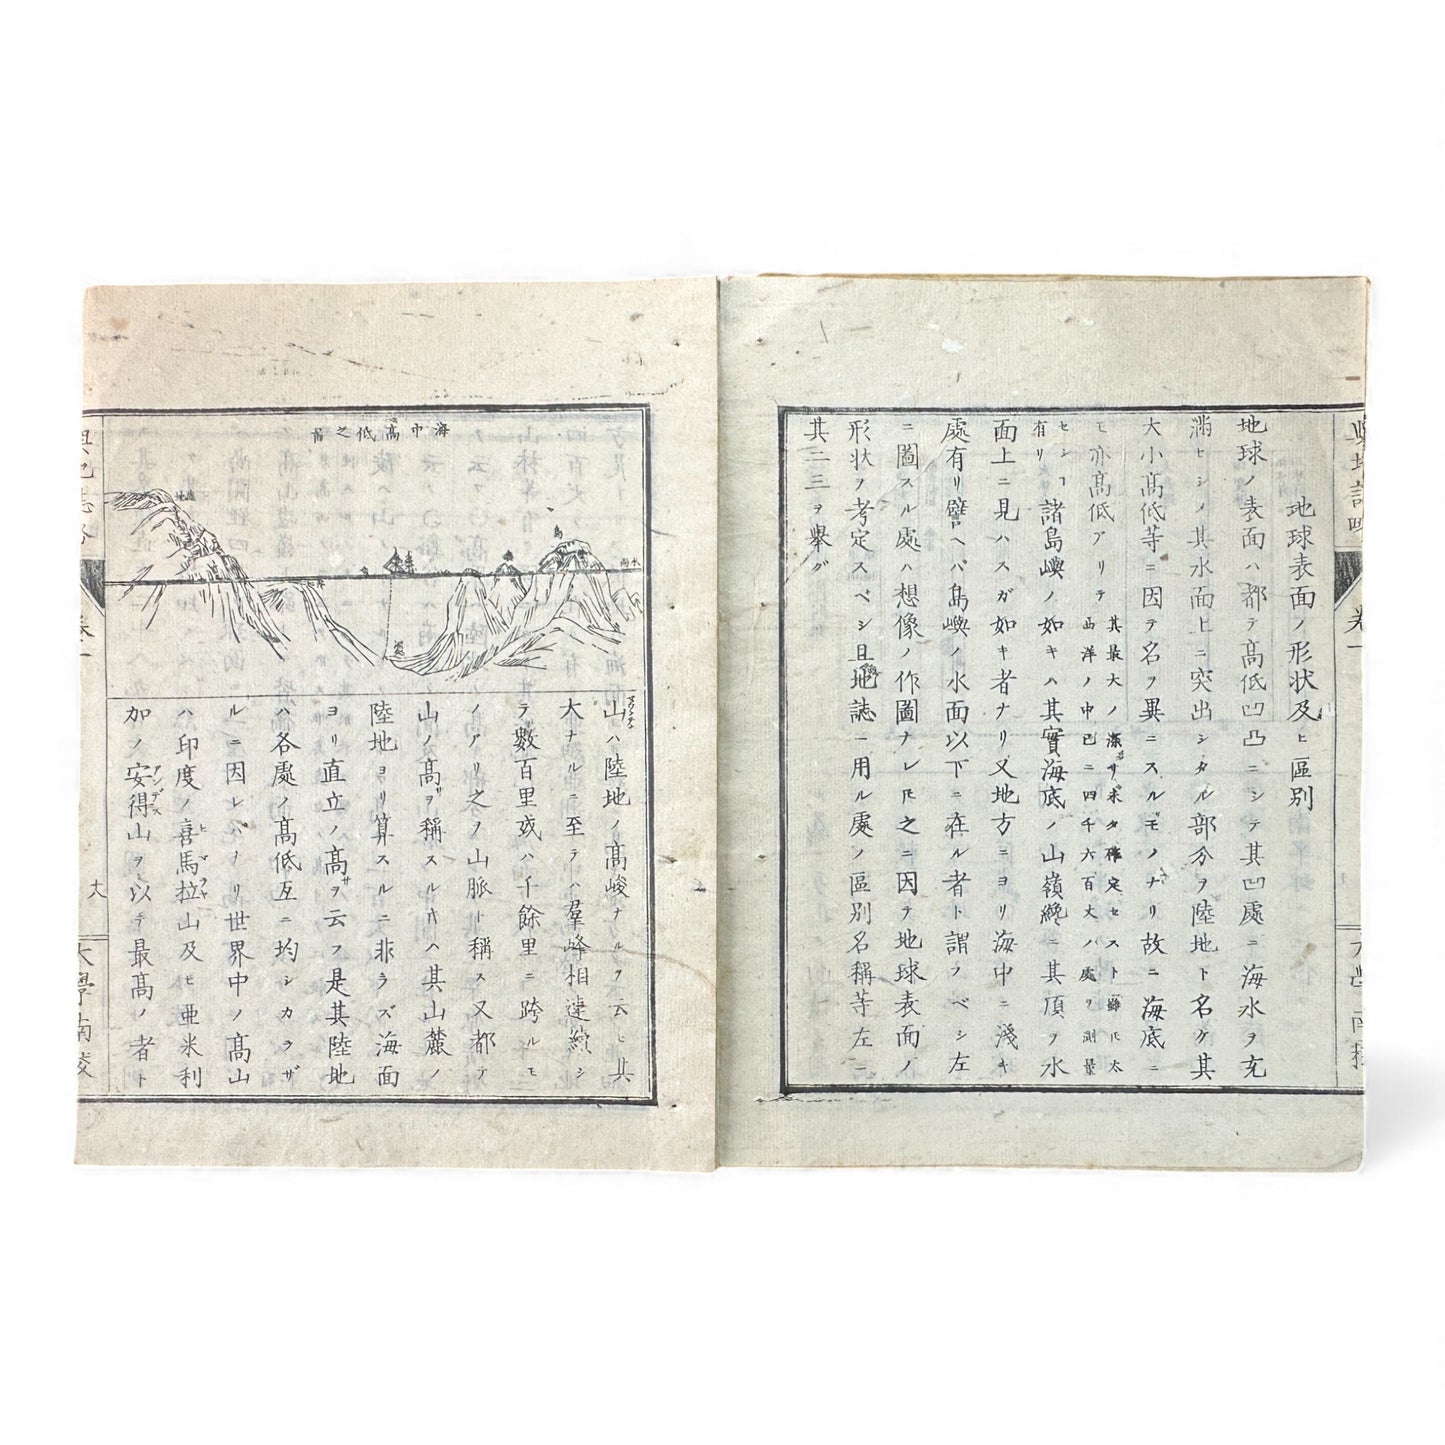 地球表面ノ形状及ヒ區別
地球ノ表面ハ都テ高低凹凸ニシテ其凹處ニ海水ヲ充
満セシノ其水面上ニ突出シタル部分ヲ陸地ト名ケ其
大小高低等ニ因テ名ヲ異ニスルモノナリ故ニ海底ニ
モ亦高低アリテ
其最大ノ深サ未タ確定セスト雖𪜈太
西洋ノ中已ニ四千六百丈ハ處ヲ測量
セシヿ
有リ
諸島嶼ノ如キハ其實海底ノ山嶺纔ニ其頂ヲ水
面上ニ見ハスガ如キ者ナリ又地方ニヨリ海中ニ淺キ
處有リ譬ヘバ島嶼ノ水面以下ニ在ル者ト謂フベシ左
ニ圖スル處ハ想像ノ作圖ナレ𪜈之ニ因テ地球表面ノ
形状ヲ考定スベシ且地誌ニ用ル處ノ區別名稱等左ニ
其二三ヲ擧グ
卷一
海中高低之圖
島
水面
山ハ陸地ノ高峻ナルヲ云ヒ其
大ナルニ至テハ羣峰相連續シ
テ數百里或ハ千餘里ニ跨ルモ
ノアリ之ヲ山脈ト稱ス又都テ
山ノ高サヲ稱スル𪜈ハ其山麓ノ
陸地ヨリ算スルニ非ラズ海面
ヨリ直立ノ高サヲ云フ是其陸地
ハ各處ノ高低互ニ均シカラザ
ルニ因レバナリ世界中ノ高山
ハ印度ノ喜馬拉山及ヒ亜米利
加ノ安得山ヲ以テ最高ノ者ト
アンデス
大學南校